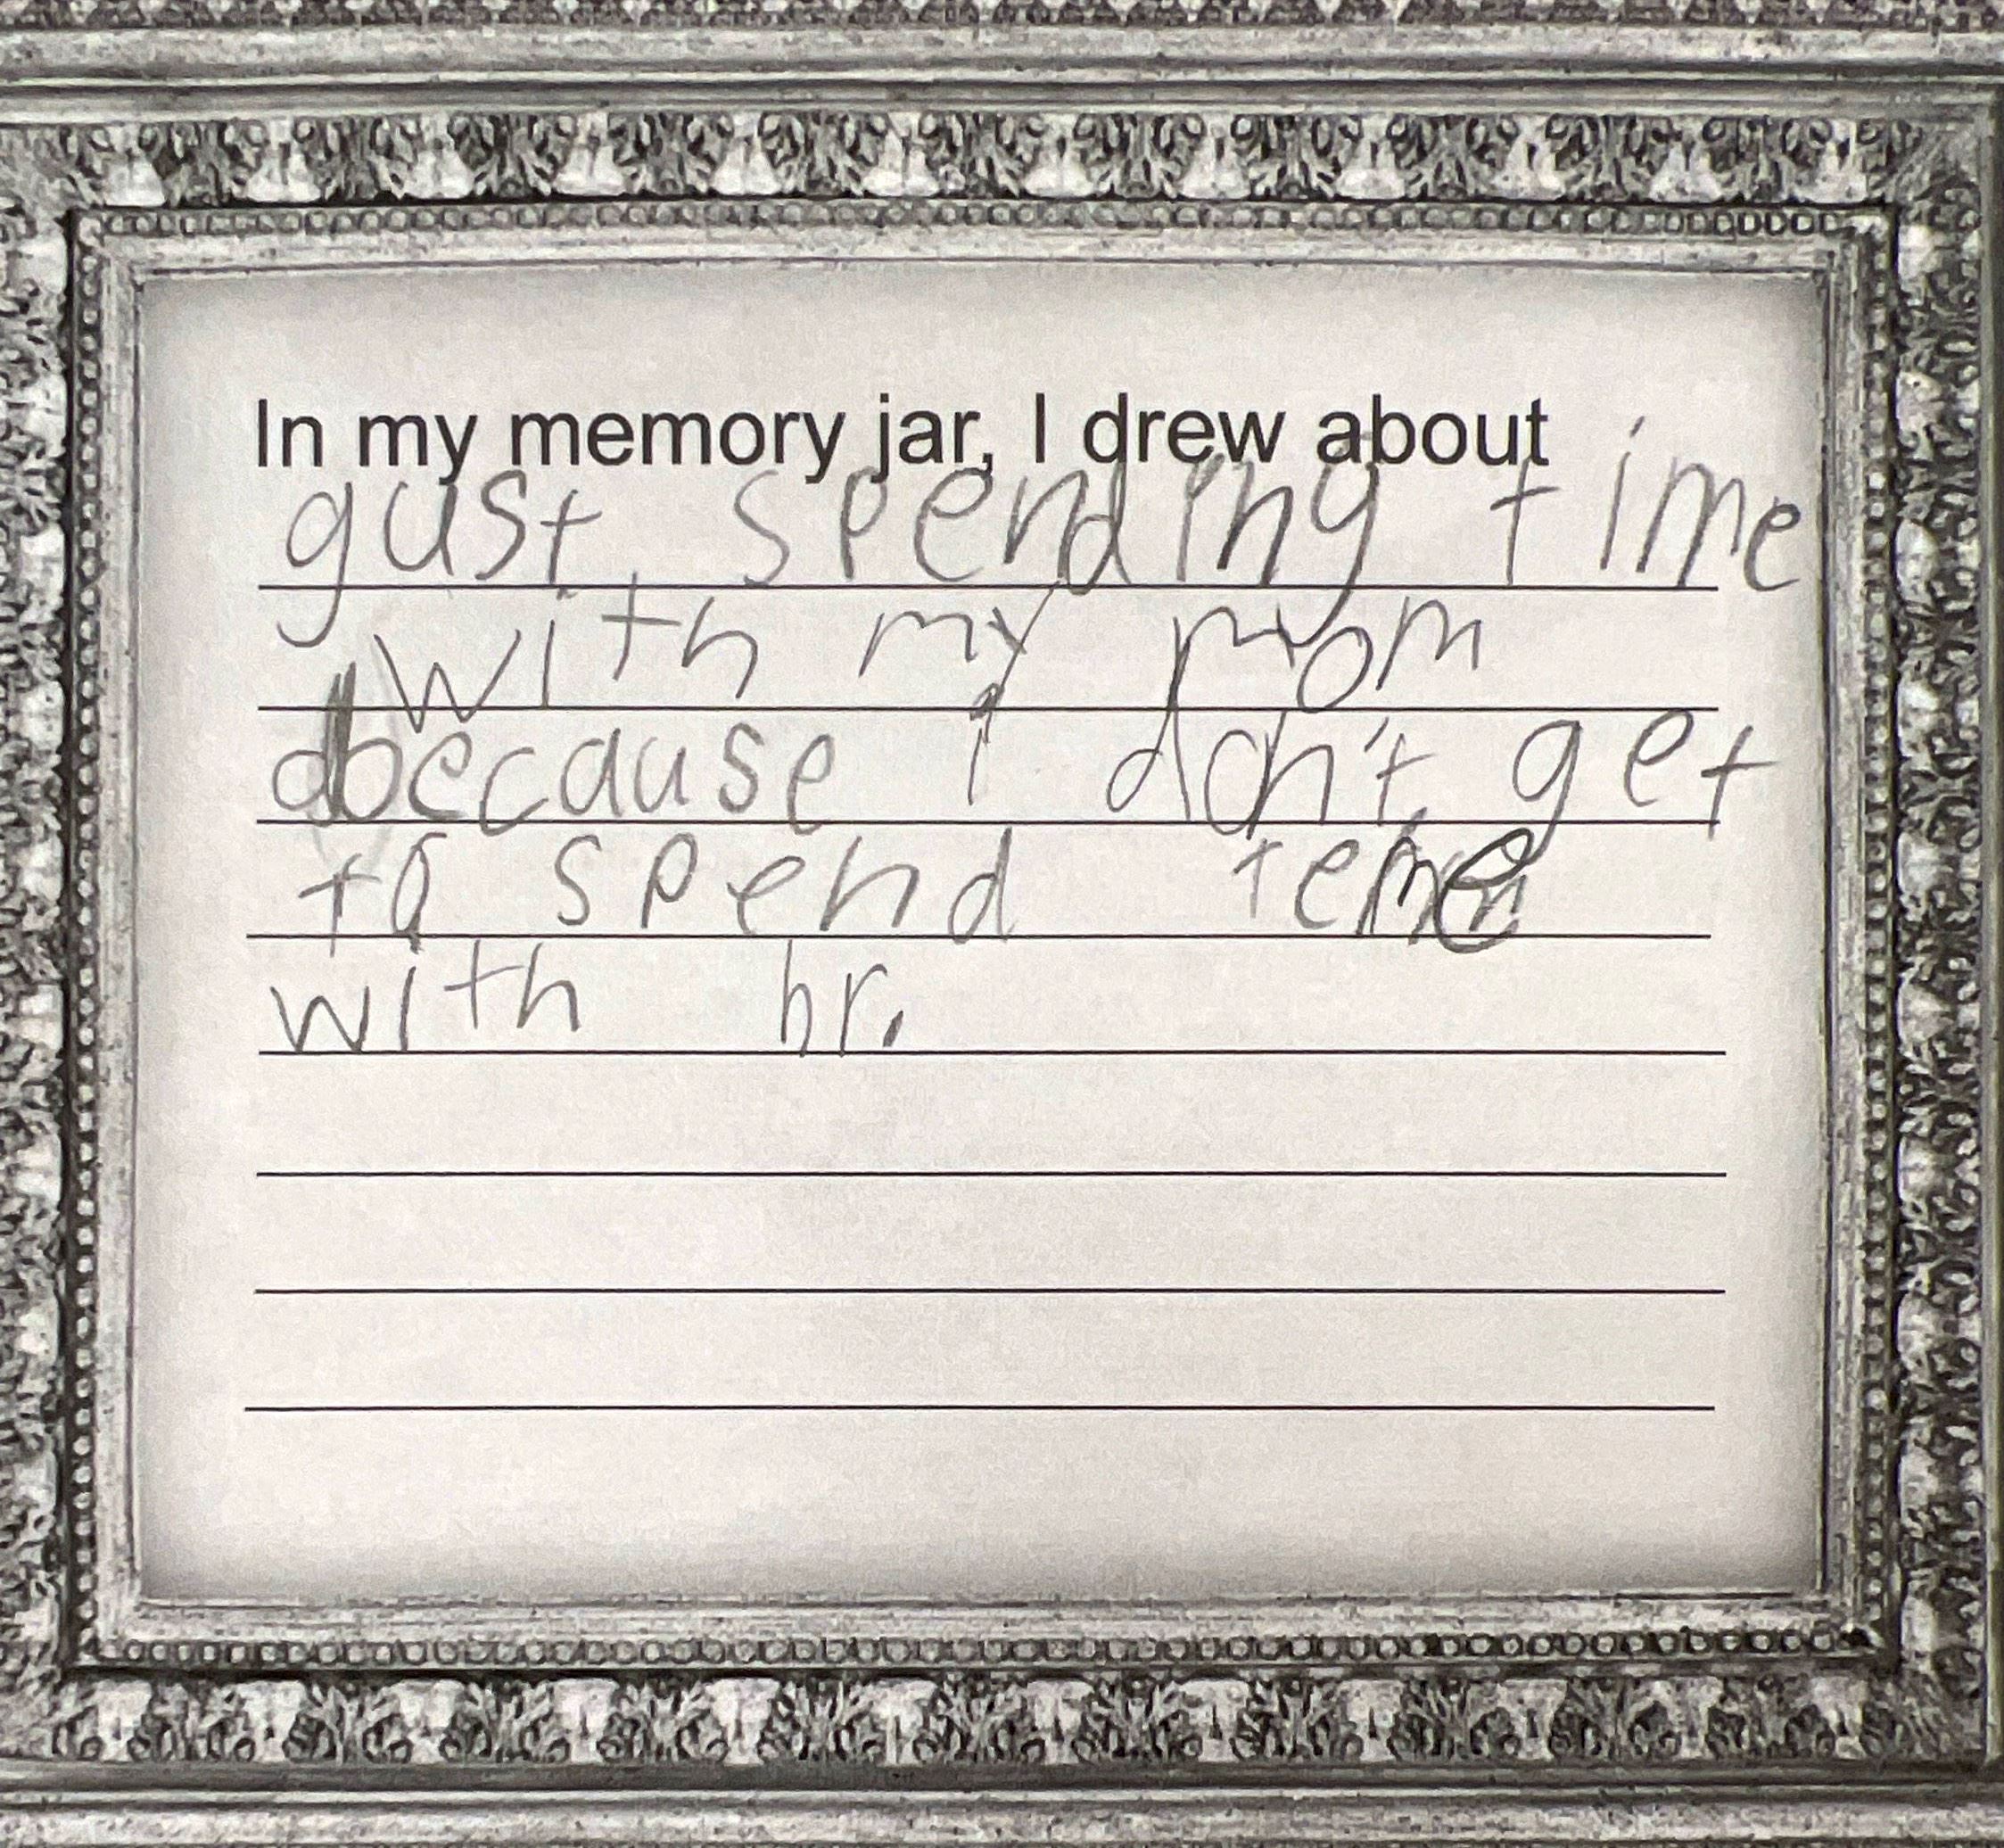 In my memory jar, I drew about
gust spending time
with my mom
because i don't get
to spend teme
with hr.